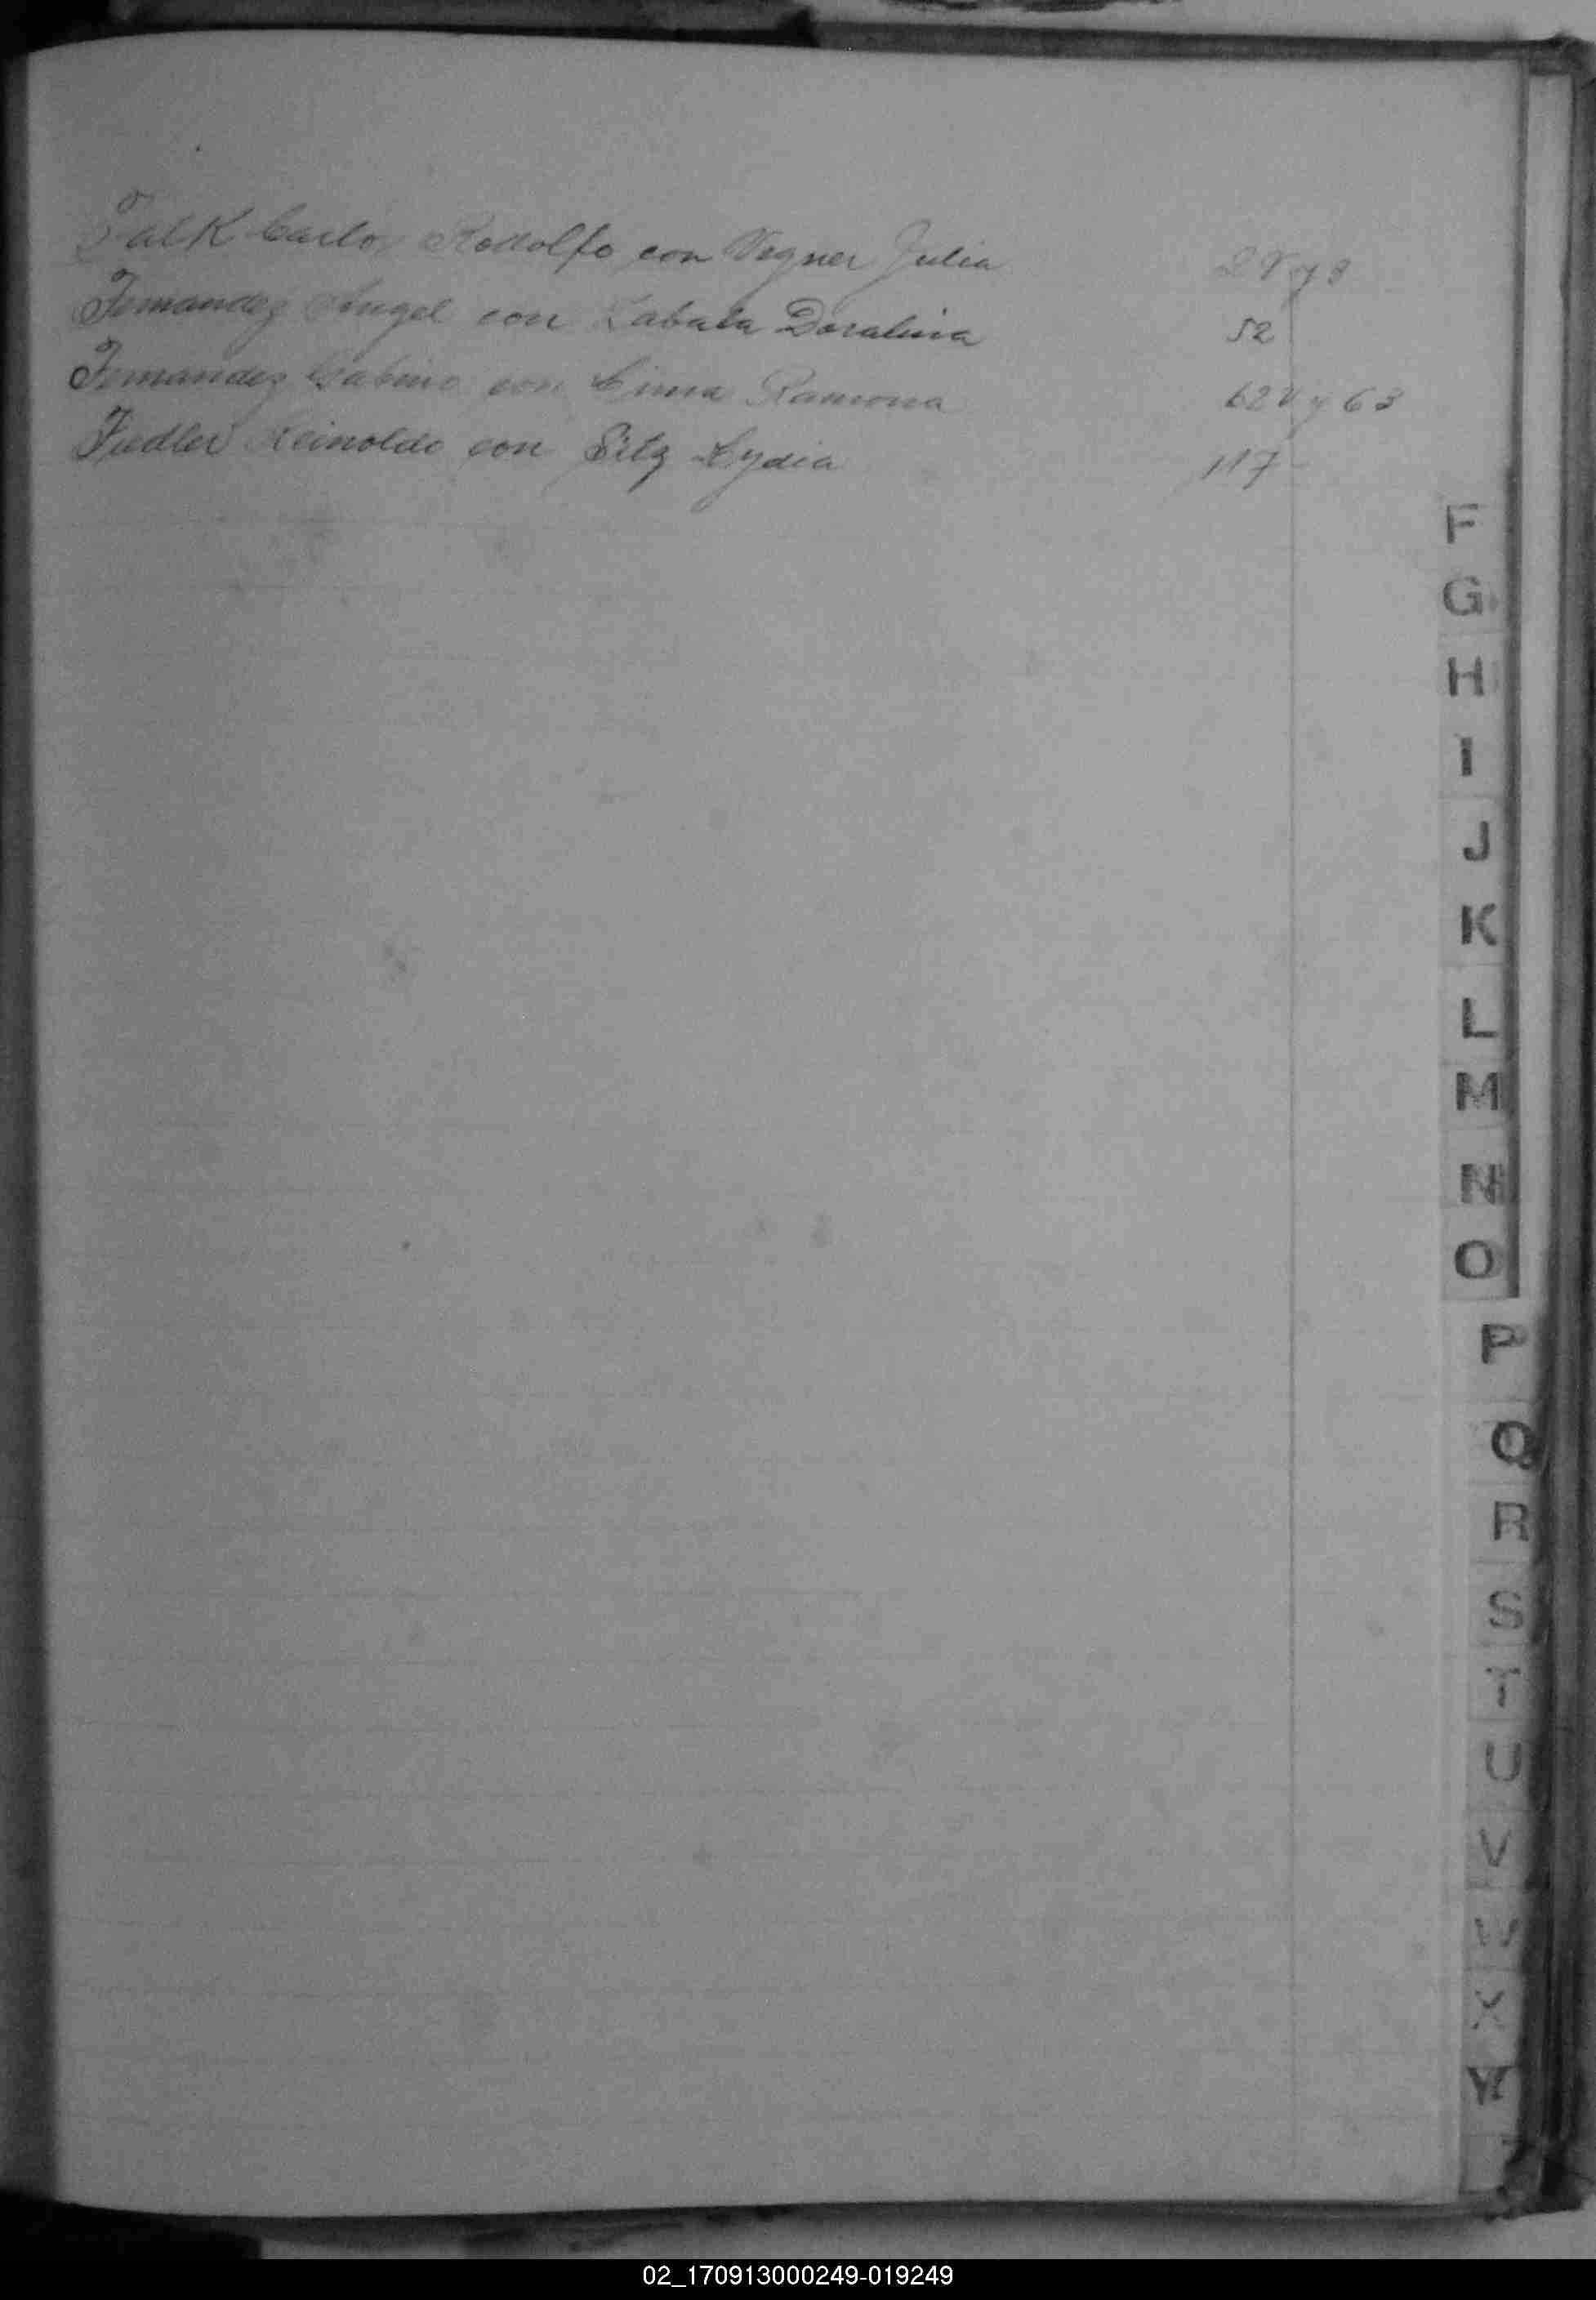 Falk Carlos Rodolfo con Vegner Julia 2V y 3
Fernandez Angel con Zabala Doralina 52
Fernandez Gabino con Lima Ramona 62V y 63
Fiedler Reinoldo con Sitz Lydia 117
F
G
H
I
J
K
L
M
N
O
P
Q
R
S
T
U
V
W
X
Y
02_170913000249-019249